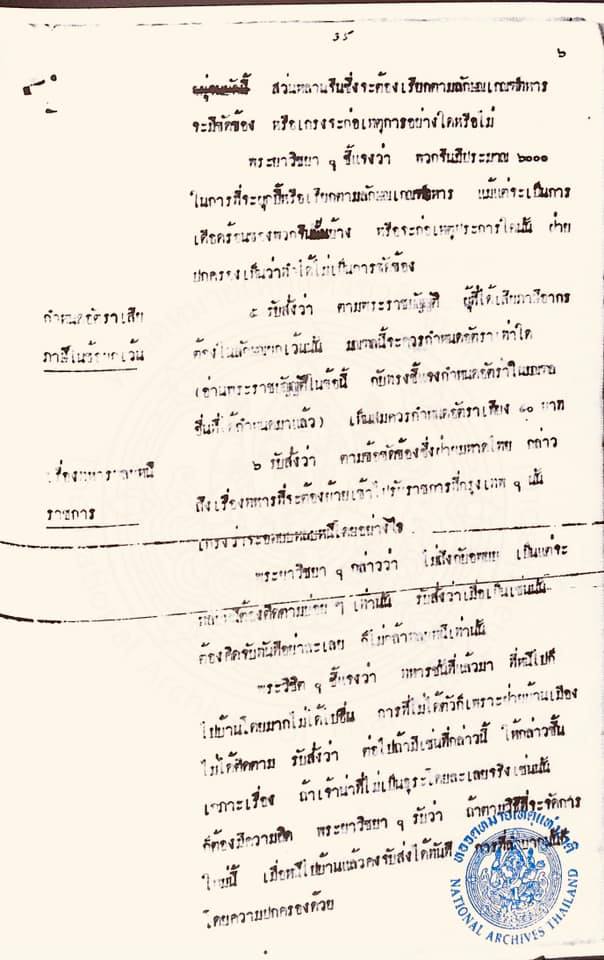 35
๖
สวนหลานจีนซึ่งจะต้องเรียกตามลักษณเกณฑ์ทหาร
จะมีขัดข้อง หรือเกรงจะก่อเหตุการอย่างใดหรือไม่
พระยาวิชยา ฯ ชี้แจงว่า พวกจีนมีประมาณ ๖๐๐๐
ในการที่จะผูกปี้หรือเรียกตามลักษณเกณฑ์ทหาร แม้แต่จะเป็นการ
เดือดร้อนของพวกจีนบ้าง หรือจะก่อเหตุประการใดนั้น ฝ่าย
ปกครองเป็นว่าทำได้ไม่เป็นการขัดข้อง
กำหนดอัตราเสีย
ภาษีในข้อยกเว้น
๕ รับสั่งว่า ตามพระราชบัญญัติ ผู้ที่ได้เสียภาษีอากร
ต้องในลักษณยกเว้นนั้น มณฑลนี้จะควรกำหนดอัตราเท่าใด
(อ่านพระราชบัญญัติในข้อนี้ กับทรงชี้แจงกำหนดอัตราในมณฑล
อื่นที่ได้กำหนดมาแล้ว) เห็นสมควรกำหนดอัตราเพียง ๑๐ บาท
เรื่องทหารหลบหนี
ราชการ
๖ รับสั่งว่า ตามข้อขัดข้องซึ่งฝ่ายมหาดไทย กล่าว
ถึงเรื่องทหารที่จะต้องย้ายเข้าไปรับราชการที่กรุงเทพ ฯ นั้น
เกรงว่าจะอพยพหลบหนีโดยอย่างไร
พระยาวิชยา ฯ กล่าวว่า ไม่ถึงกับอพยพ เป็นแต่จะ
ต้องติดตามบ่อย ๆ เท่านั้น รับสั่งว่าเมื่อเป็นเช่นนั้น
ต้องคิดจับทันทีอย่าละเลย ก็ไม่กล้าหลบหนีเท่านั้น
พระวิชิต ฯ ชี้แจงว่า ทหารชั้นที่แล้วมา ที่หนีไปก็
ไปบ้านโดยมากไม่ได้ไปอื่น การที่ไม่ได้ตัวก็เพราะฝ่ายบ้านเมือง
ไม่ได้ติดตาม รับสั่งว่า ต่อไปถ้ามีเช่นที่กล่าวนี้ ให้กล่าวขึ้น
เฉภาะเรื่อง ถ้าเจ้าน่าที่ไม่เป็นธุระโดยละเลยจริงเช่นนั้น
ก็ต้องมีความผิด พระยาวิชยา ฯ รับว่า ถ้าตามวิธีที่จะจัดการ
ใหม่นี้ เมื่อหนีไปบ้านแล้วคงรับส่งได้ทันที การที่ลำบากนั้นก็
โดยความปกครองด้วย
หอจดหมายเหตุแห่งชาติ
NATIONAL ARCHIVES THAILAND